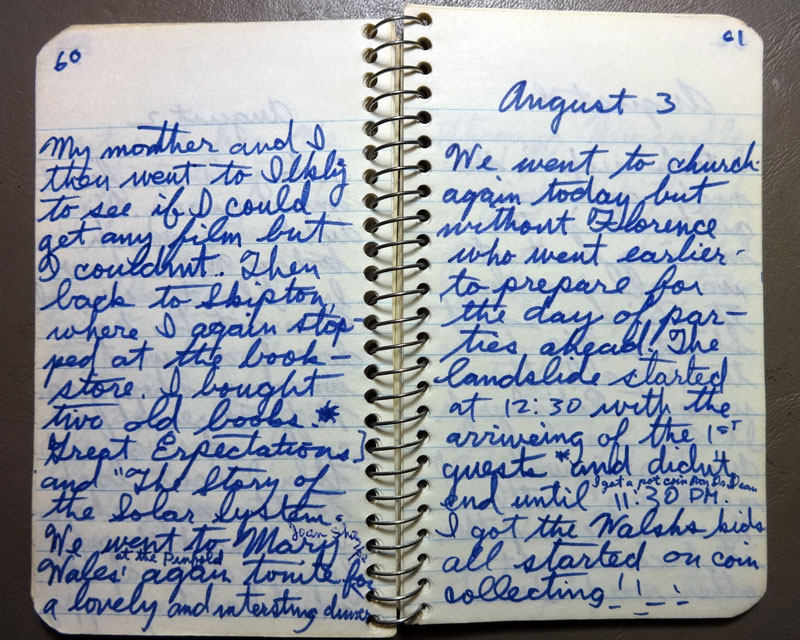 60
My monther and I
then went to Ilkly
to see if I could
get any film but
I couldnt. Then
back to Skipton,
where I again stop-
ped at the book-
store. I bought
two old books. *
Grept Expectations]
and "The Story of
the Solar System.
We went to Mary Joan
at the Pinfold
Wales' again tonite for
a lovely and intersting dinner
61
August 3
We went to church
again today but
without Florence
who went earlier
to prepare for
the day of par-
ties ahead. The
landslide started
at 12:30 with the
arriveing of the 1ST
guests * and didn't
I got a pot coin from
end until 11:30 PM.
I got the Walshs kids
all started on coin
collecting!!_!